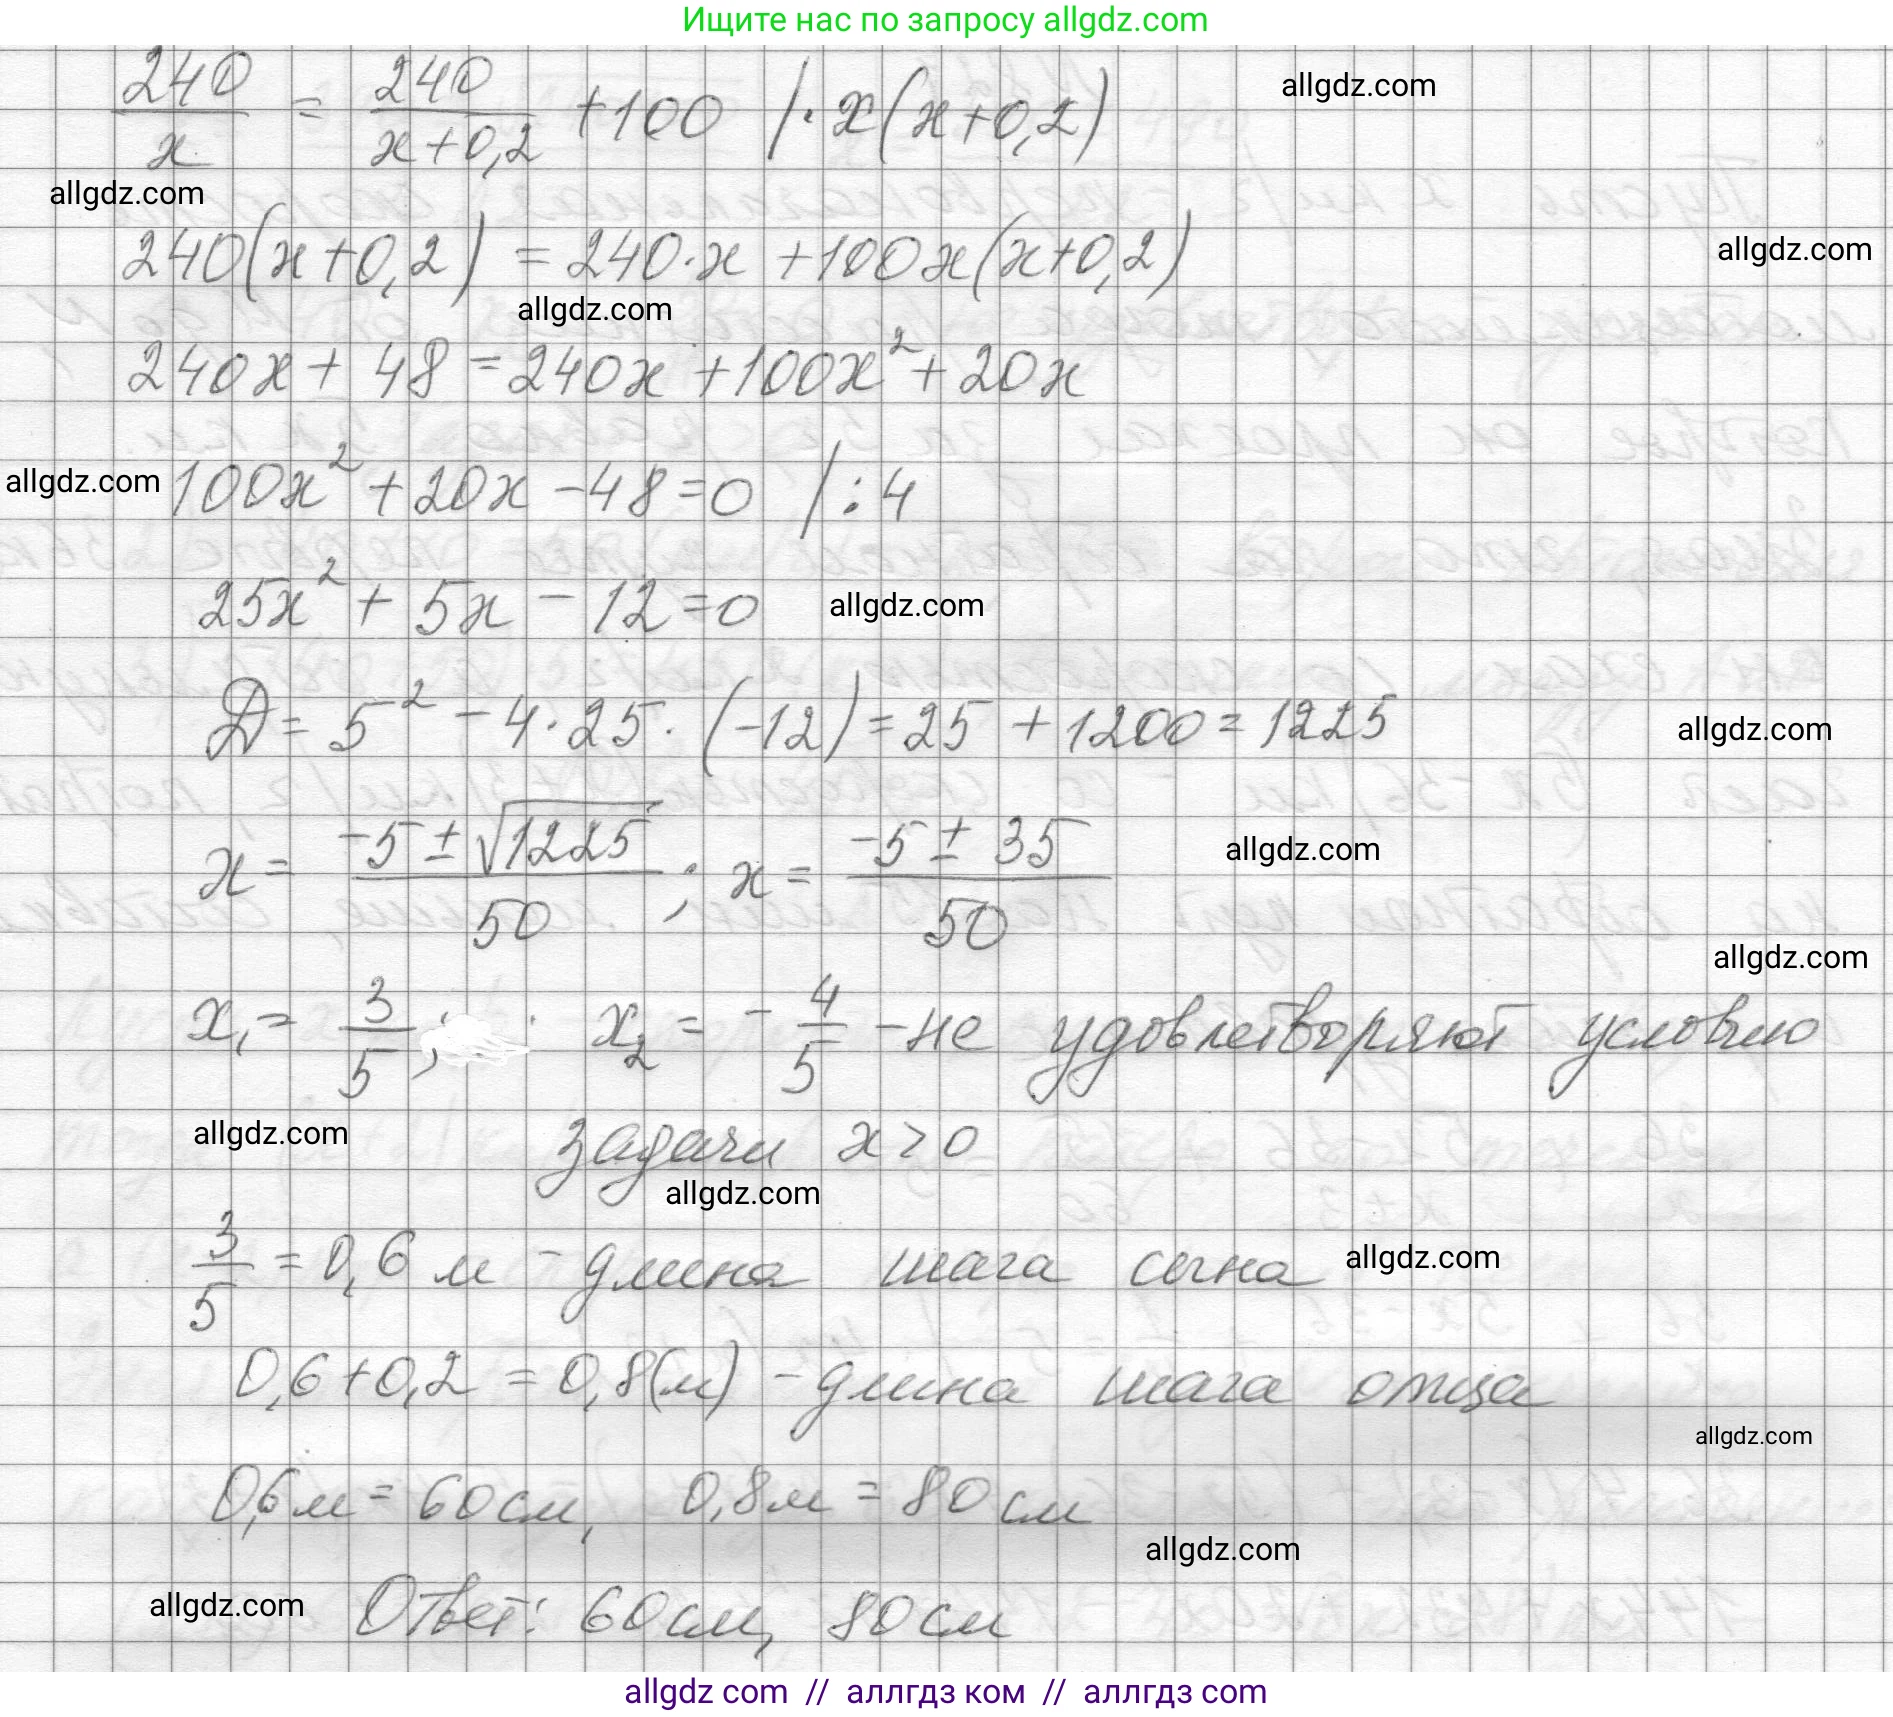 Ищите нас по запросу allgdz.com
240/x = 240/(x+0,2) +100 /· x(x+0,2)
allgdz.com
allgdz.com
240(x+0,2) = 240·x +100x(x+0,2)
allgdz.com
allgdz.com
240x + 48 = 240x +100x² + 20x
allgdz.com
100x² + 20x - 48 = 0 / : 4
25x² + 5x - 12 = 0
allgdz.com
D = 5² - 4·25·(-12) = 25 + 1200 = 1225
allgdz.com
x = (-5 ± √1225)/50 ; x = (-5 ± 35)/50
allgdz.com
allgdz.com
x₁ = 3/5 ; x₂ = - 4/5 - не удовлетворяют условию
allgdz.com
задачи x > 0
allgdz.com
3/5 = 0,6 м - длина шага сына
allgdz.com
0,6 + 0,2 = 0,8(м) - длина шага отца
allgdz.com
0,6м = 60см, 0,8м = 80 см
allgdz.com
allgdz.com
Ответ: 60см, 80см
allgdz com // аллгдз ком // аллгдз com